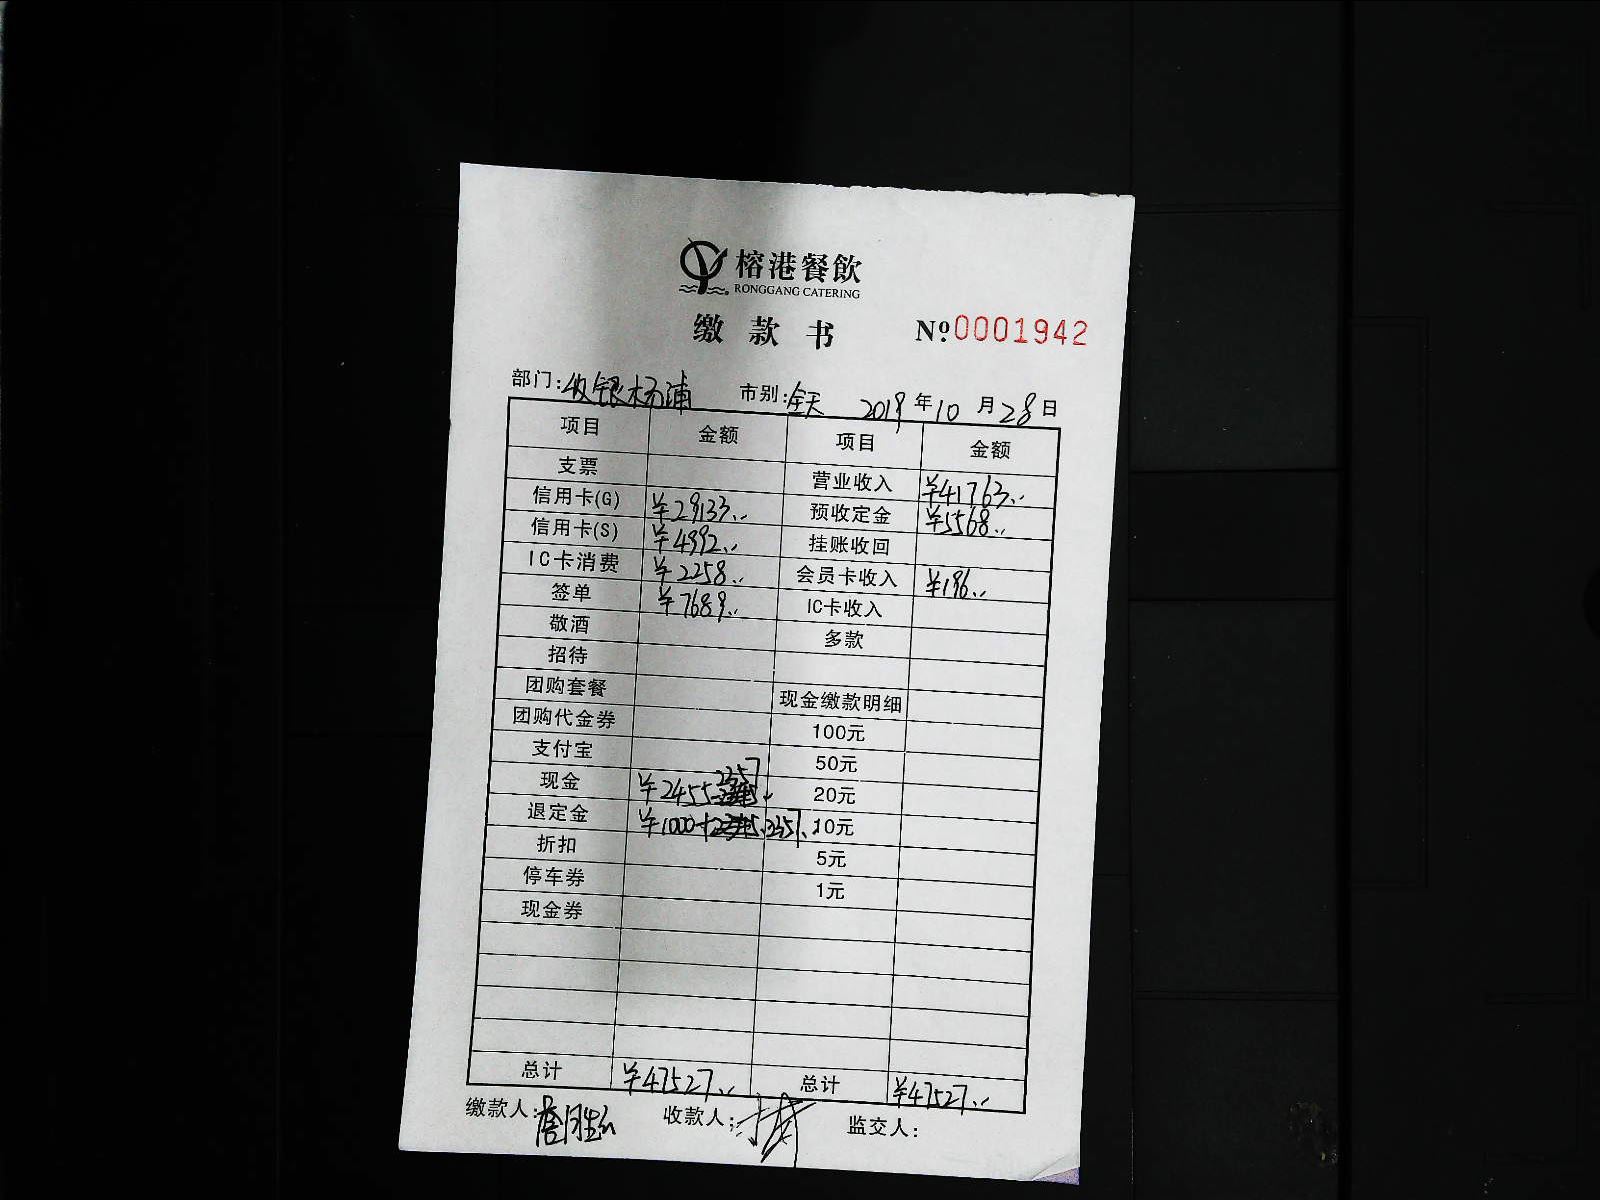 榕港餐飲
RONGGANG CATERING
缴款书 №0001942
部门:收银杨浦 市别:全天 2019年10月28日
项目 金额 项目 金额
支票 营业收入 ¥41763..
信用卡(G) ¥29133.. 预收定金 ¥5568..
信用卡(S) ¥4992.. 挂账收回
IC卡消费 ¥2258.. 会员卡收入 ¥196..
签单 ¥7689.. IC卡收入
敬酒 多款
招待
团购套餐 现金缴款明细
团购代金券 100元
支付宝 50元
现金 ¥2455-2357 20元
退定金 ¥1000+2357.. 10元
折扣 5元
停车券 1元
现金券
总计 ¥47527.. 总计 ¥47527..
缴款人: 收款人: 监交人: